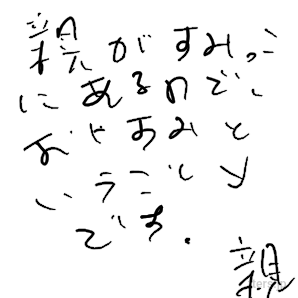 親がすみっこ
にあるので、
おやすみと
いうこと
です。
親